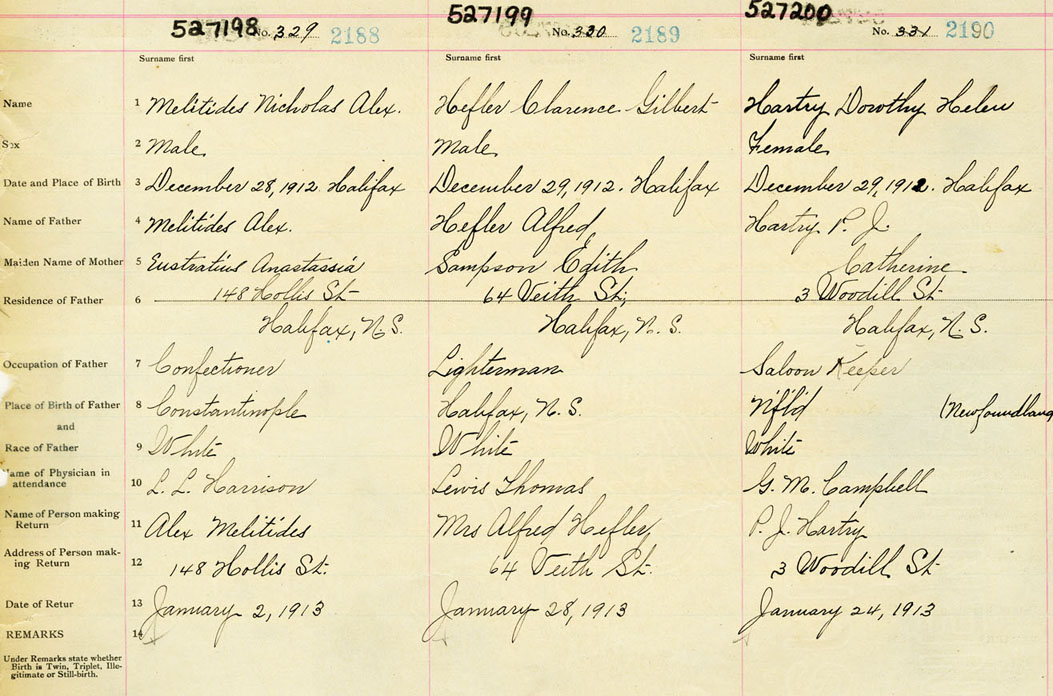 527198 No. 329 2188 527199 No. 330 2189 527200 No. 331 2190
Surname first Surname first Surname first
Name 1 Melitides Nicholas Alex. Hefler Clarence Gilbert Hartry Dorothy Helen
Sex 2 Male Male Female
Date and Place of Birth 3 December 28, 1912. Halifax December 29, 1912. Halifax December 29, 1912. Halifax
Name of Father 4 Melitides Alex. Hefler Alfred Hartry P. J.
Maiden Name of Mother 5 Eustratius Anastassia Sampson Edith Catherine
Residence of Father 6 148 Hollis St 64 Veith St; 3 Woodill St
Halifax, N.S. Halifax, N.S. Halifax, N.S.
Occupation of Father 7 Confectioner Lighterman Saloon Keeper
Place of Birth of Father 8 Constantinople Halifax, N.S. Nfl'd (Newfoundland
and
Race of Father 9 White White White
Name of Physician in
attendance 10 L. L. Harrison Lewis Thomas G. M. Campbell
Name of Person making
Return 11 Alex Melitides Mrs Alfred Hefler P. J. Hartry
Address of Person mak-
ing Return 12 148 Hollis St. 64 Veith St. 3 Woodill St
Date of Retur 13 January 2, 1913 January 28, 1913 January 24, 1913
REMARKS 14
Under Remarks state whether
Birth is Twin, Triplet, Ille-
gitimate or Still-birth.